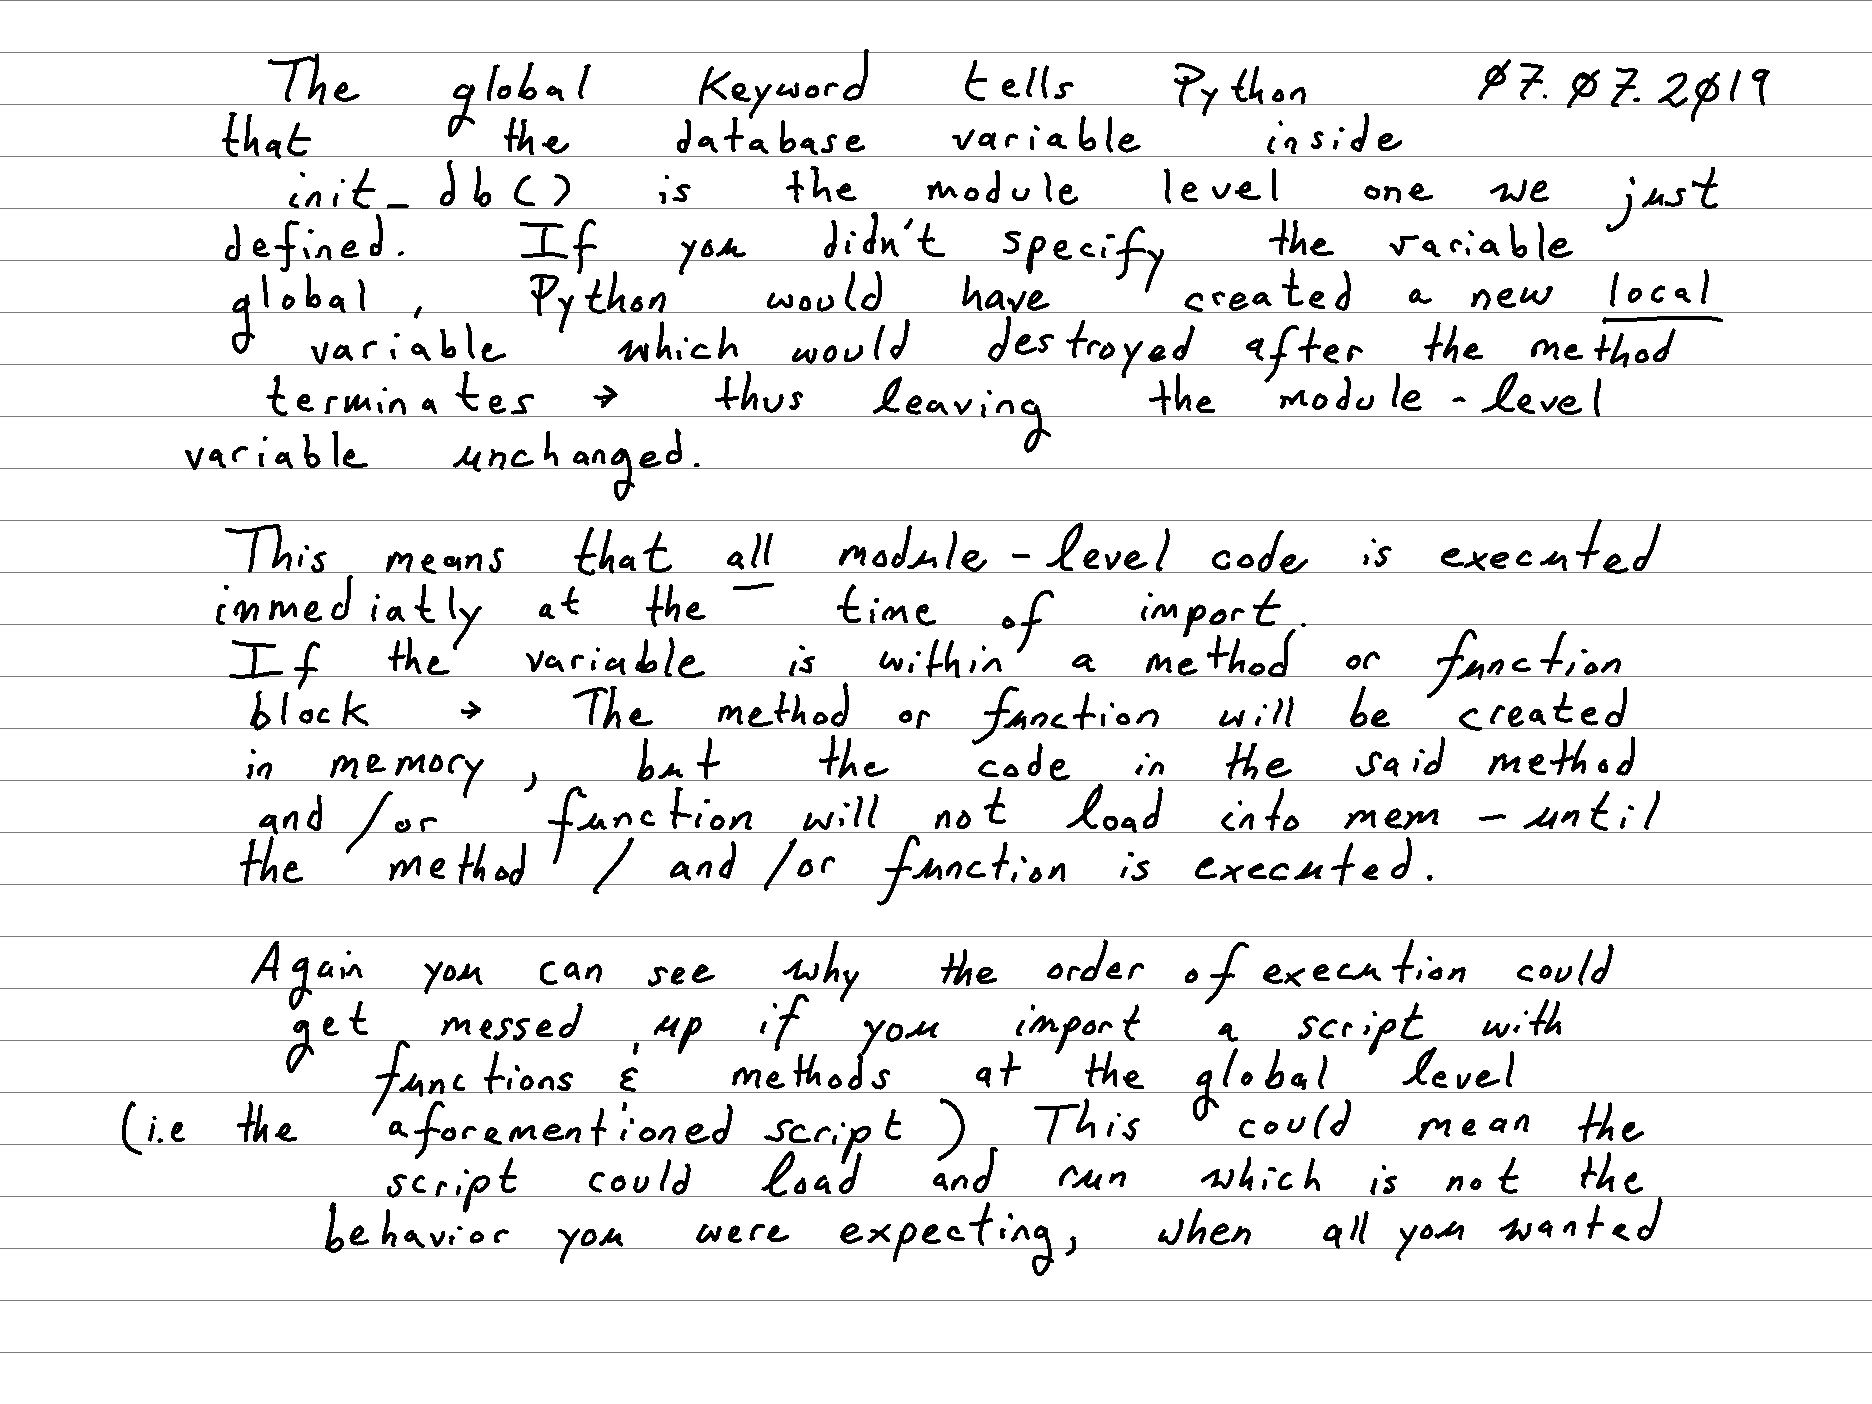 The global Keyword tells Python 07.07.2019
that the database variable inside
init_db() is the module level one we just
defined. If you didn't specify the variable
global, Python would have created a new local
variable which would destroyed after the method
terminates → thus leaving the module-level
variable unchanged.
This means that all module-level code is executed
inmediatly at the time of import.
If the variable is within a method or function
block → The method or function will be created
in memory, but the code in the said method
and/or function will not load into mem - until
the method / and/or function is executed.
Again you can see why the order of execution could
get messed up if you import a script with
functions & methods at the global level
(i.e the aforementioned script). This could mean the
script could load and run which is not the
behavior you were expecting, when all you wanted